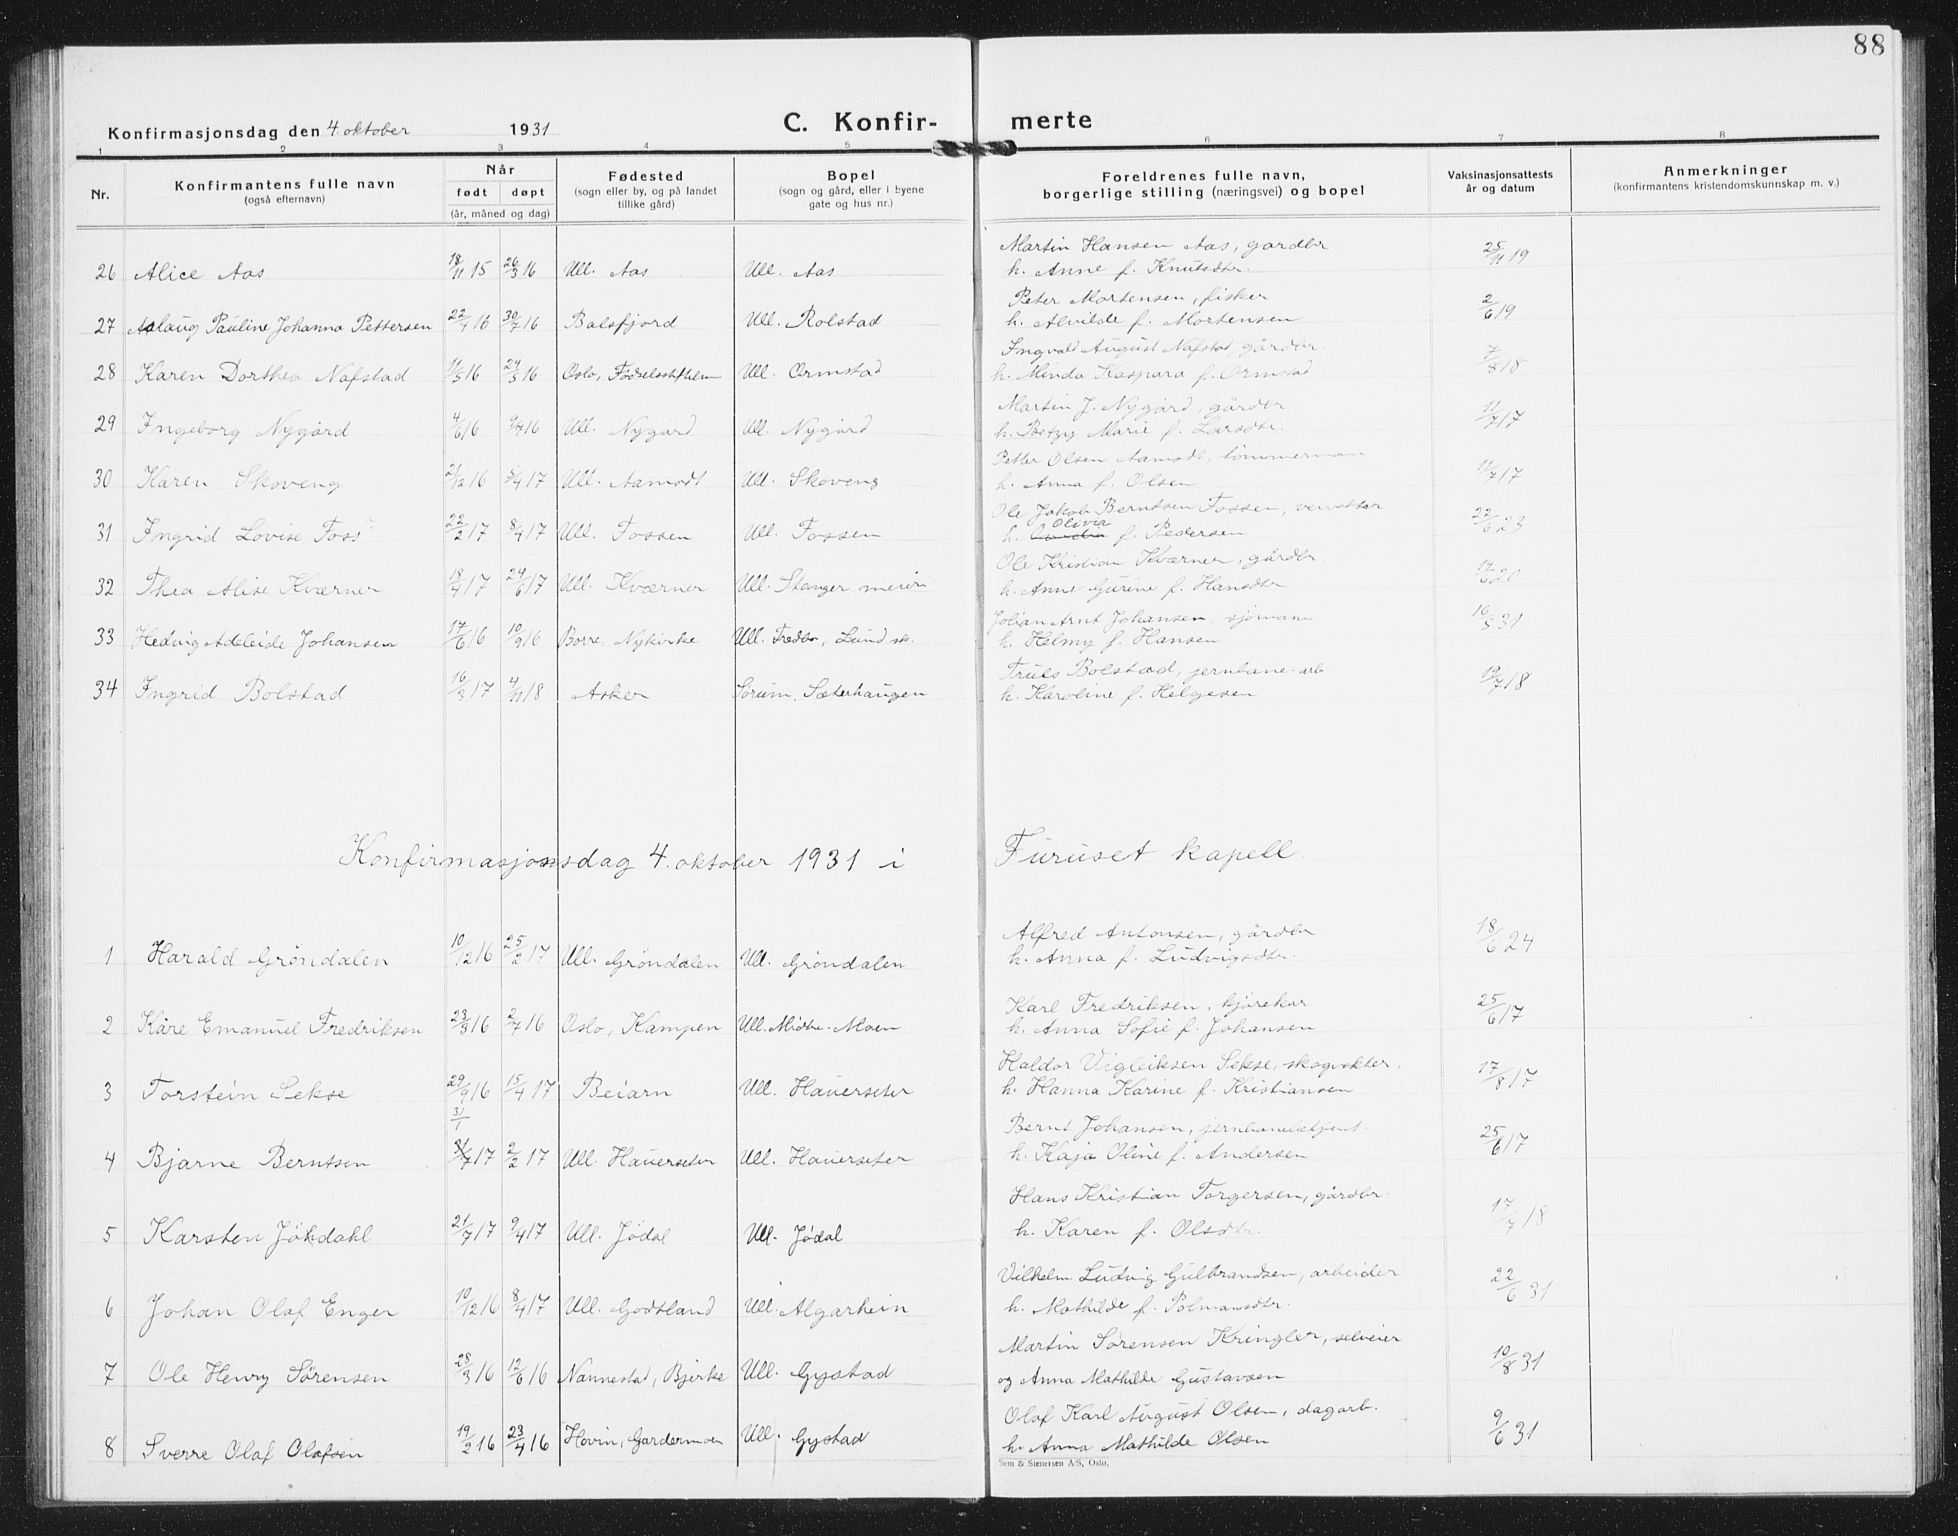 88
Konfirmasjonsdag den 4. oktober 1931 C. Konfir- merte
1 2 3 4 5 6 7 8
Nr. Konfirmantens fulle navn (også efternavn) Når født døpt (år, måned og dag) Fødested (sogn eller by, og på landet tillike gård) Bopel (sogn og gård, eller i byene gate og hus nr.) Foreldrenes fulle navn, borgerlige stilling (næringsvei) og bopel Vaksinasjonsattests år og datum Anmerkninger (konfirmantens kristendomskunnskap m. v.)
Martin Hansen Aas, gardbr.
26 Alice Aas 18/11 15 26/3 16 Ull. Aas Ull. Aas h. Anne f. Knutsdtr. 25/11 19
Peter Mortensen, fisker
27 Aslaug Pauline Johanna Pettersen 22/4 16 30/7 16 Balsfjord Ull. Rolstad h. Alvilde f. Mortensen 2/6 19
Ingvald August Nafstad, gårdbr.
28 Karen Dorthea Nafstad 11/3 16 24/3 16 Oslo, Fødselsstiftelsen Ull. Ormstad h. Minda Kaspara f. Ormstad 7/8 18
Martin J. Nygård, gårdbr.
29 Ingeborg Nygård 4/6 16 9/7 16 Ull. Nygård Ull. Nygård h. Betzy Marie f. Larsdtr. 11/7 17
Petter Olsen Aamodt, tømmermann
30 Karen Skoveng 21/12 16 5/4 17 Ull. Aamodt Ull. Skoveng h. Anna f. Olsen 11/7 17
Ole Jakob Berntsen Fossen,
31 Ingrid Lovise Foss 22/2 17 8/4 17 Ull. Fossen Ull. Fossen h. Olivia f. Pedersen 22/6 23
Ole Kristian Kværner, gårdbr.
32 Thea Alise Kværner 18/4 17 24/6 17 Ull. Kværner Ull. Stanger meieri h. Anne Gurine f. Hansdtr 17/6 20
Johan Arnt Johansen, sjømann
33 Hedvig Adeleide Johansen 17/6 16 10/9 16 Borre, Nykirke Ull. Fredbo, Lund sk. h. Helmy f. Hansen 16/8 31
Truls Bolstad, jernbane-arb
34 Ingrid Bolstad 16/3 17 4/11 18 Asker Sørum, Sæterhaugen h. Karoline f. Helgesen 19/7 18
Konfirmasjonsdag 4. oktober 1931 i Furuset kapell.
Alfred Antonsen, gårdbr.
1 Harald Grøndalen 10/12 16 25/2 17 Ull. Grøndalen Ull. Grøndalen h. Anna f. Ludvigsdtr. 18/6 24
Karl Fredriksen, kjørekar
2 Kåre Emanuel Fredriksen 23/3 16 2/7 16 Oslo, Kampen Ull. Midtre-Moen h. Anna Sofie f. Johansen 25/6 17
Haldor Vigleiksen Sekse, skogvokter.
3 Torstein Sekse 29/9 16 15/4 17 Beiarn Ull. Hauerseter h. Hanna Karine f. Kristiansen 17/8 17
31/1 Bernt Johansen, jernbanebetjent.
4 Bjarne Berntsen 17 2/2 17 Ull. Hauerseter Ull. Hauerseter h. Kaja Oline f. Andersen 25/6 17
Hans Kristian Torgersen, gårdbr.
5 Karsten Jøkdahl 21/7 17 9/4 17 Ull. Jødal Ull. Jødal h. Karen f. Olsdtr. 17/7 18
Vilhelm Ludvig Gulbrandsen, arbeider
6 Johan Olaf Enger 10/12 16 8/4 17 Ull. Godtland Ull. Algarheim h. Mathilde f. 22/6 31
Martin Sørensen Kringler, selveier
7 Ole Henry Sørensen 28/3 16 12/6 16 Nannestad, Bjerke Ull. Gystad og Anna Mathilde Gustavsen 10/8 31
Olaf Karl August Olsen, dagarb.
8 Sverre Olaf Olafsen 19/2 16 23/4 16 Hovin, Gardermoen Ull. Gystad h. Anna Mathilde Olsen 9/6 31
Sem & Stenersen A/S, Oslo.